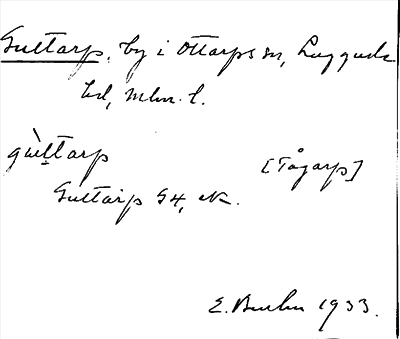 Guttarp, by i Ottarps sn, Luggude
hd, Mlm. l.
gùttarp [Tågarp]
Guttarp G4, ek.
E. 1933.